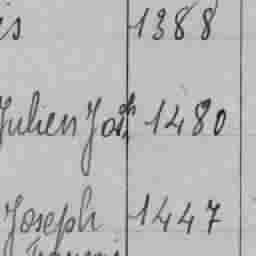 is 1388
Julien Jos^ph 1480
Joseph 1447